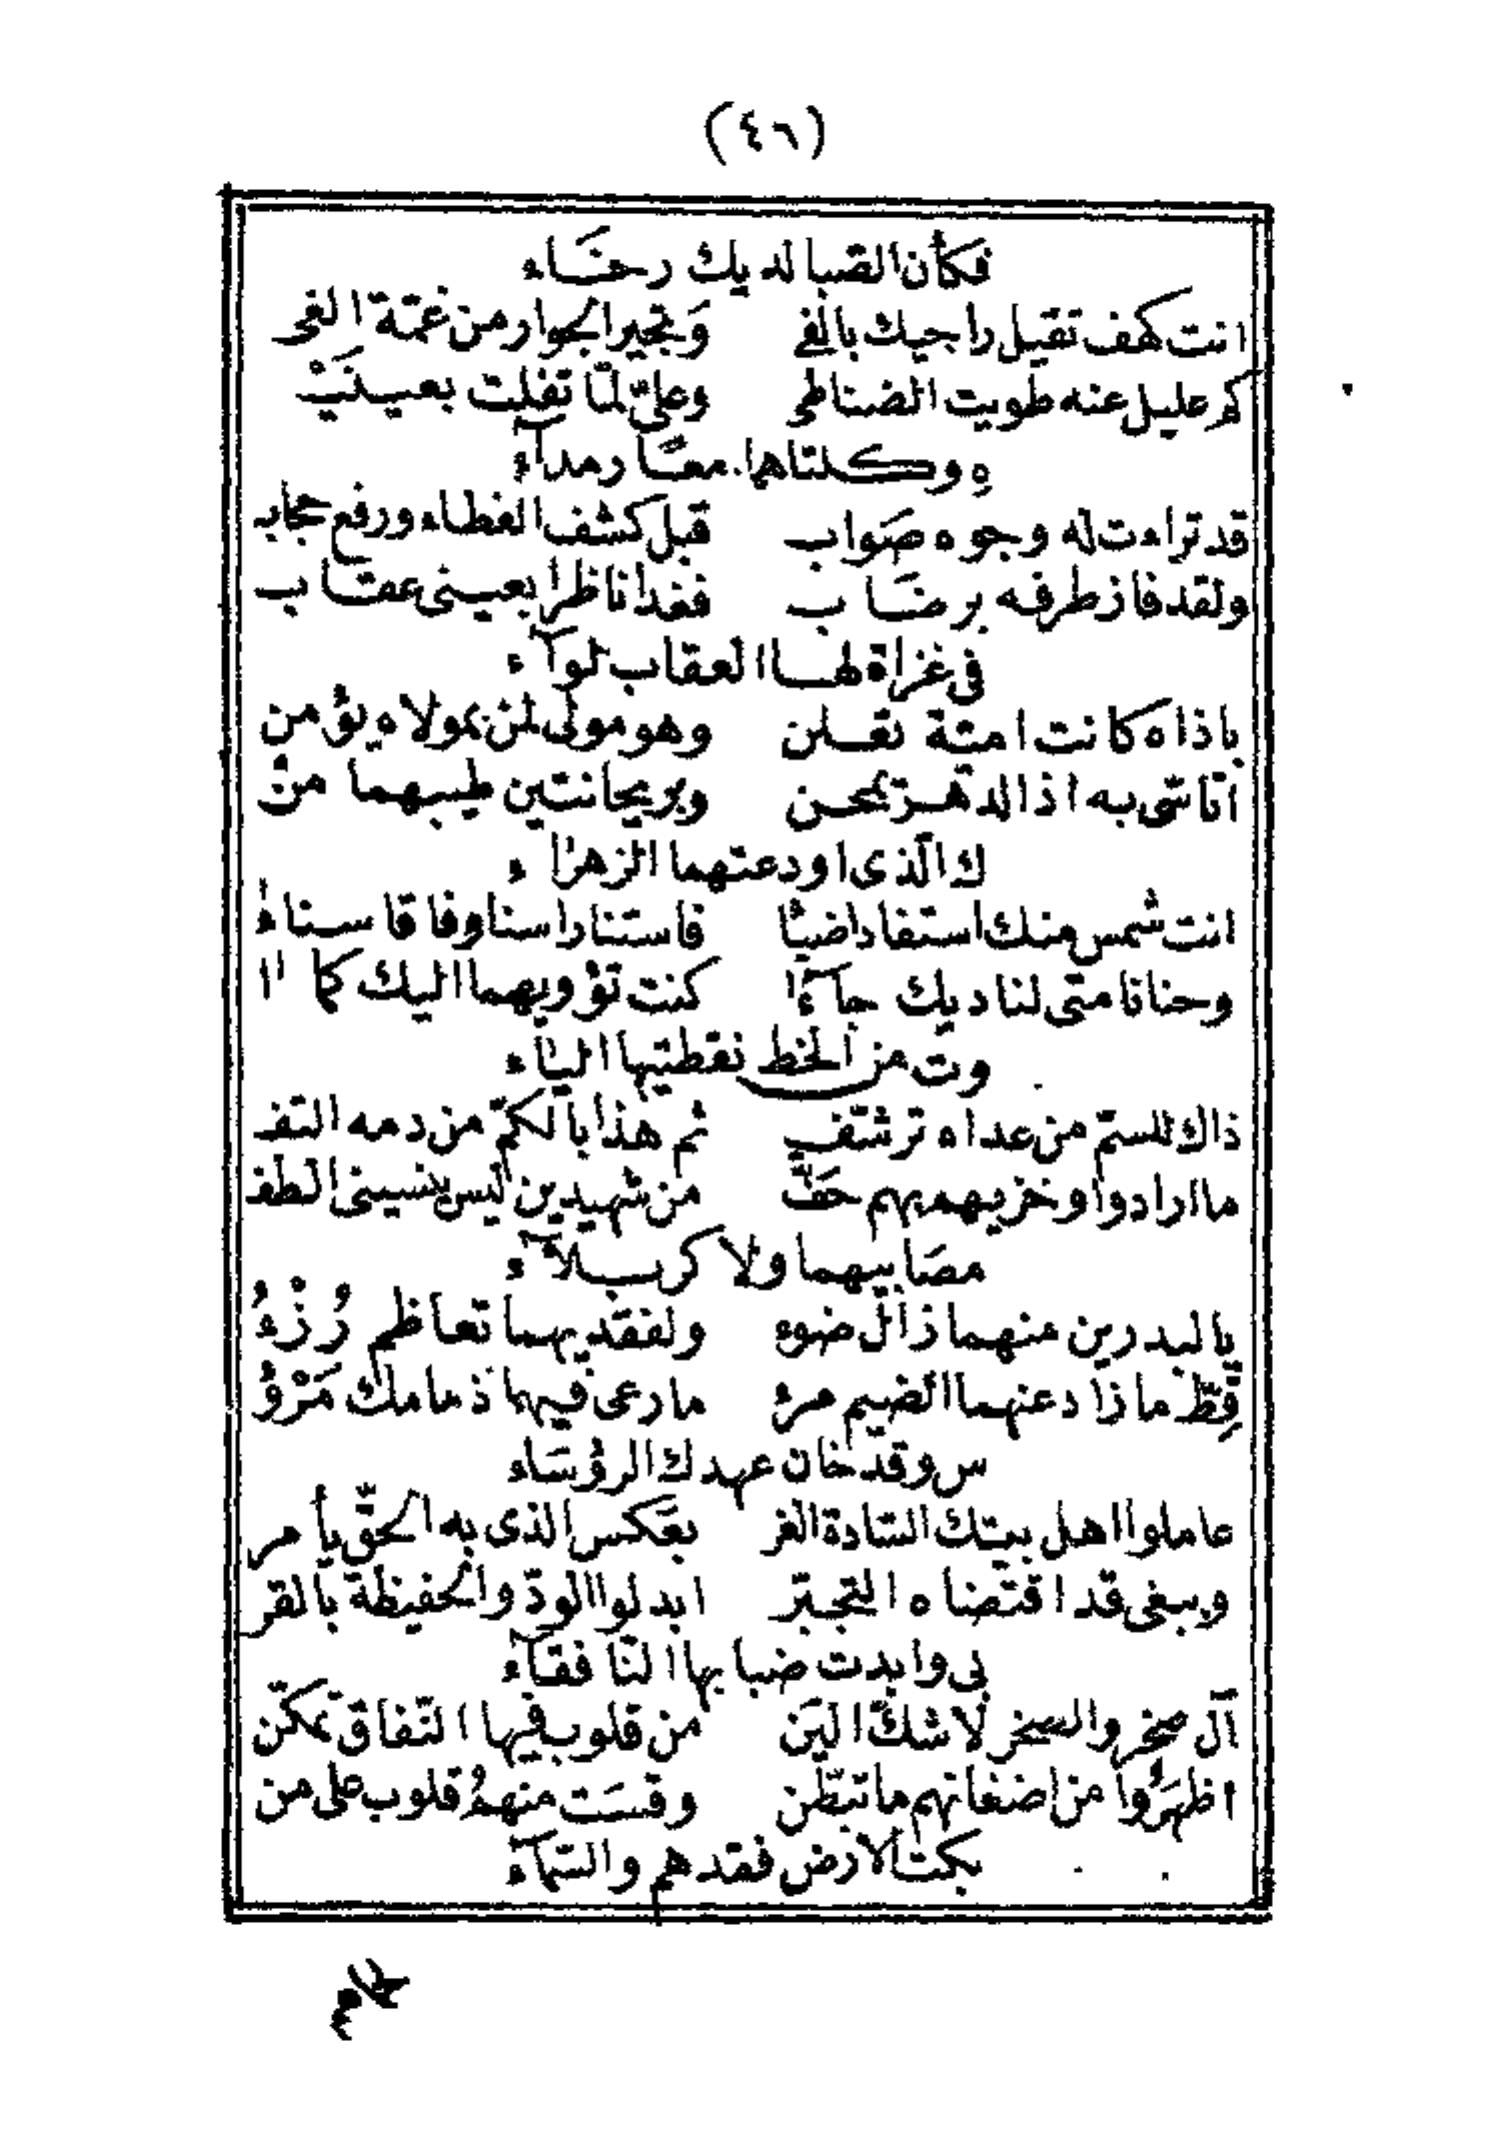 (٤٦)
فكأن الصبا لديك رخَاء
انت كهف تقيل راجيك بالفي وَتجير الجوار من غمّة الغي
كم عليل عنه طويت الضنا طي وعليّ لمّا تفلت بعيـنَيْ
ه وكلتاهما معًا رمدآء
قد تراءت له وجوه صَواب قبل كشف الغطاء ورفع حجاب
ولقد فاز طرفه برضَاب فغدا ناظرا بعيني عقاب
في غزاة لها العقاب لوآء
باذاه كانت اميّة تعلن وهو مولى لمن بمولاه يؤمن
اتاسّى به اذا الدهر يمحن وبريحانتين طيبهما من
ك الّذى اودعتهما الزهراء
انت شمس منك استفادا ضيآا فاستنارا سنا وفاقا سناءا
وحنانا متى لناديك جآءا كنت تؤويهما اليك كما اا
وت من الخط نقطتيها اليآء
ذاك للسمّ من عداه ترشّف ثم هذا بالكمّ من دمه التف
ما ارادوا وخزيهم بهم حَفّ من شهيدين ليس ينسيني الطف
مصَابيهما ولا كربـلآء
يا لبدرين منهما زال ضوء ولفقديهما تعاظم رُزْءُ
قِطّ ماذا دعنهما الضيم مرؤ ما رعى فيهما ذمامك مَرْؤُ
س وقد خان عهدك الرؤسَاء
عاملوا اهل بيتك السّادة الغر بعَكس الذى به الحقّ يأمر
وببغى قد اقتضاه التجبّر ابدلوا الودّ والحفيظة بالقر
بى وابدت ضبابها النّافقآء
آل صخر والصخر لا شكّ اليَن من قلوب فيها النّفاق تمكّن
اظهَرُوا من اضغانهم ما تبطّن وقسَت منهمُ قلوب على من
بكت الارض فقدهم والسّمآء